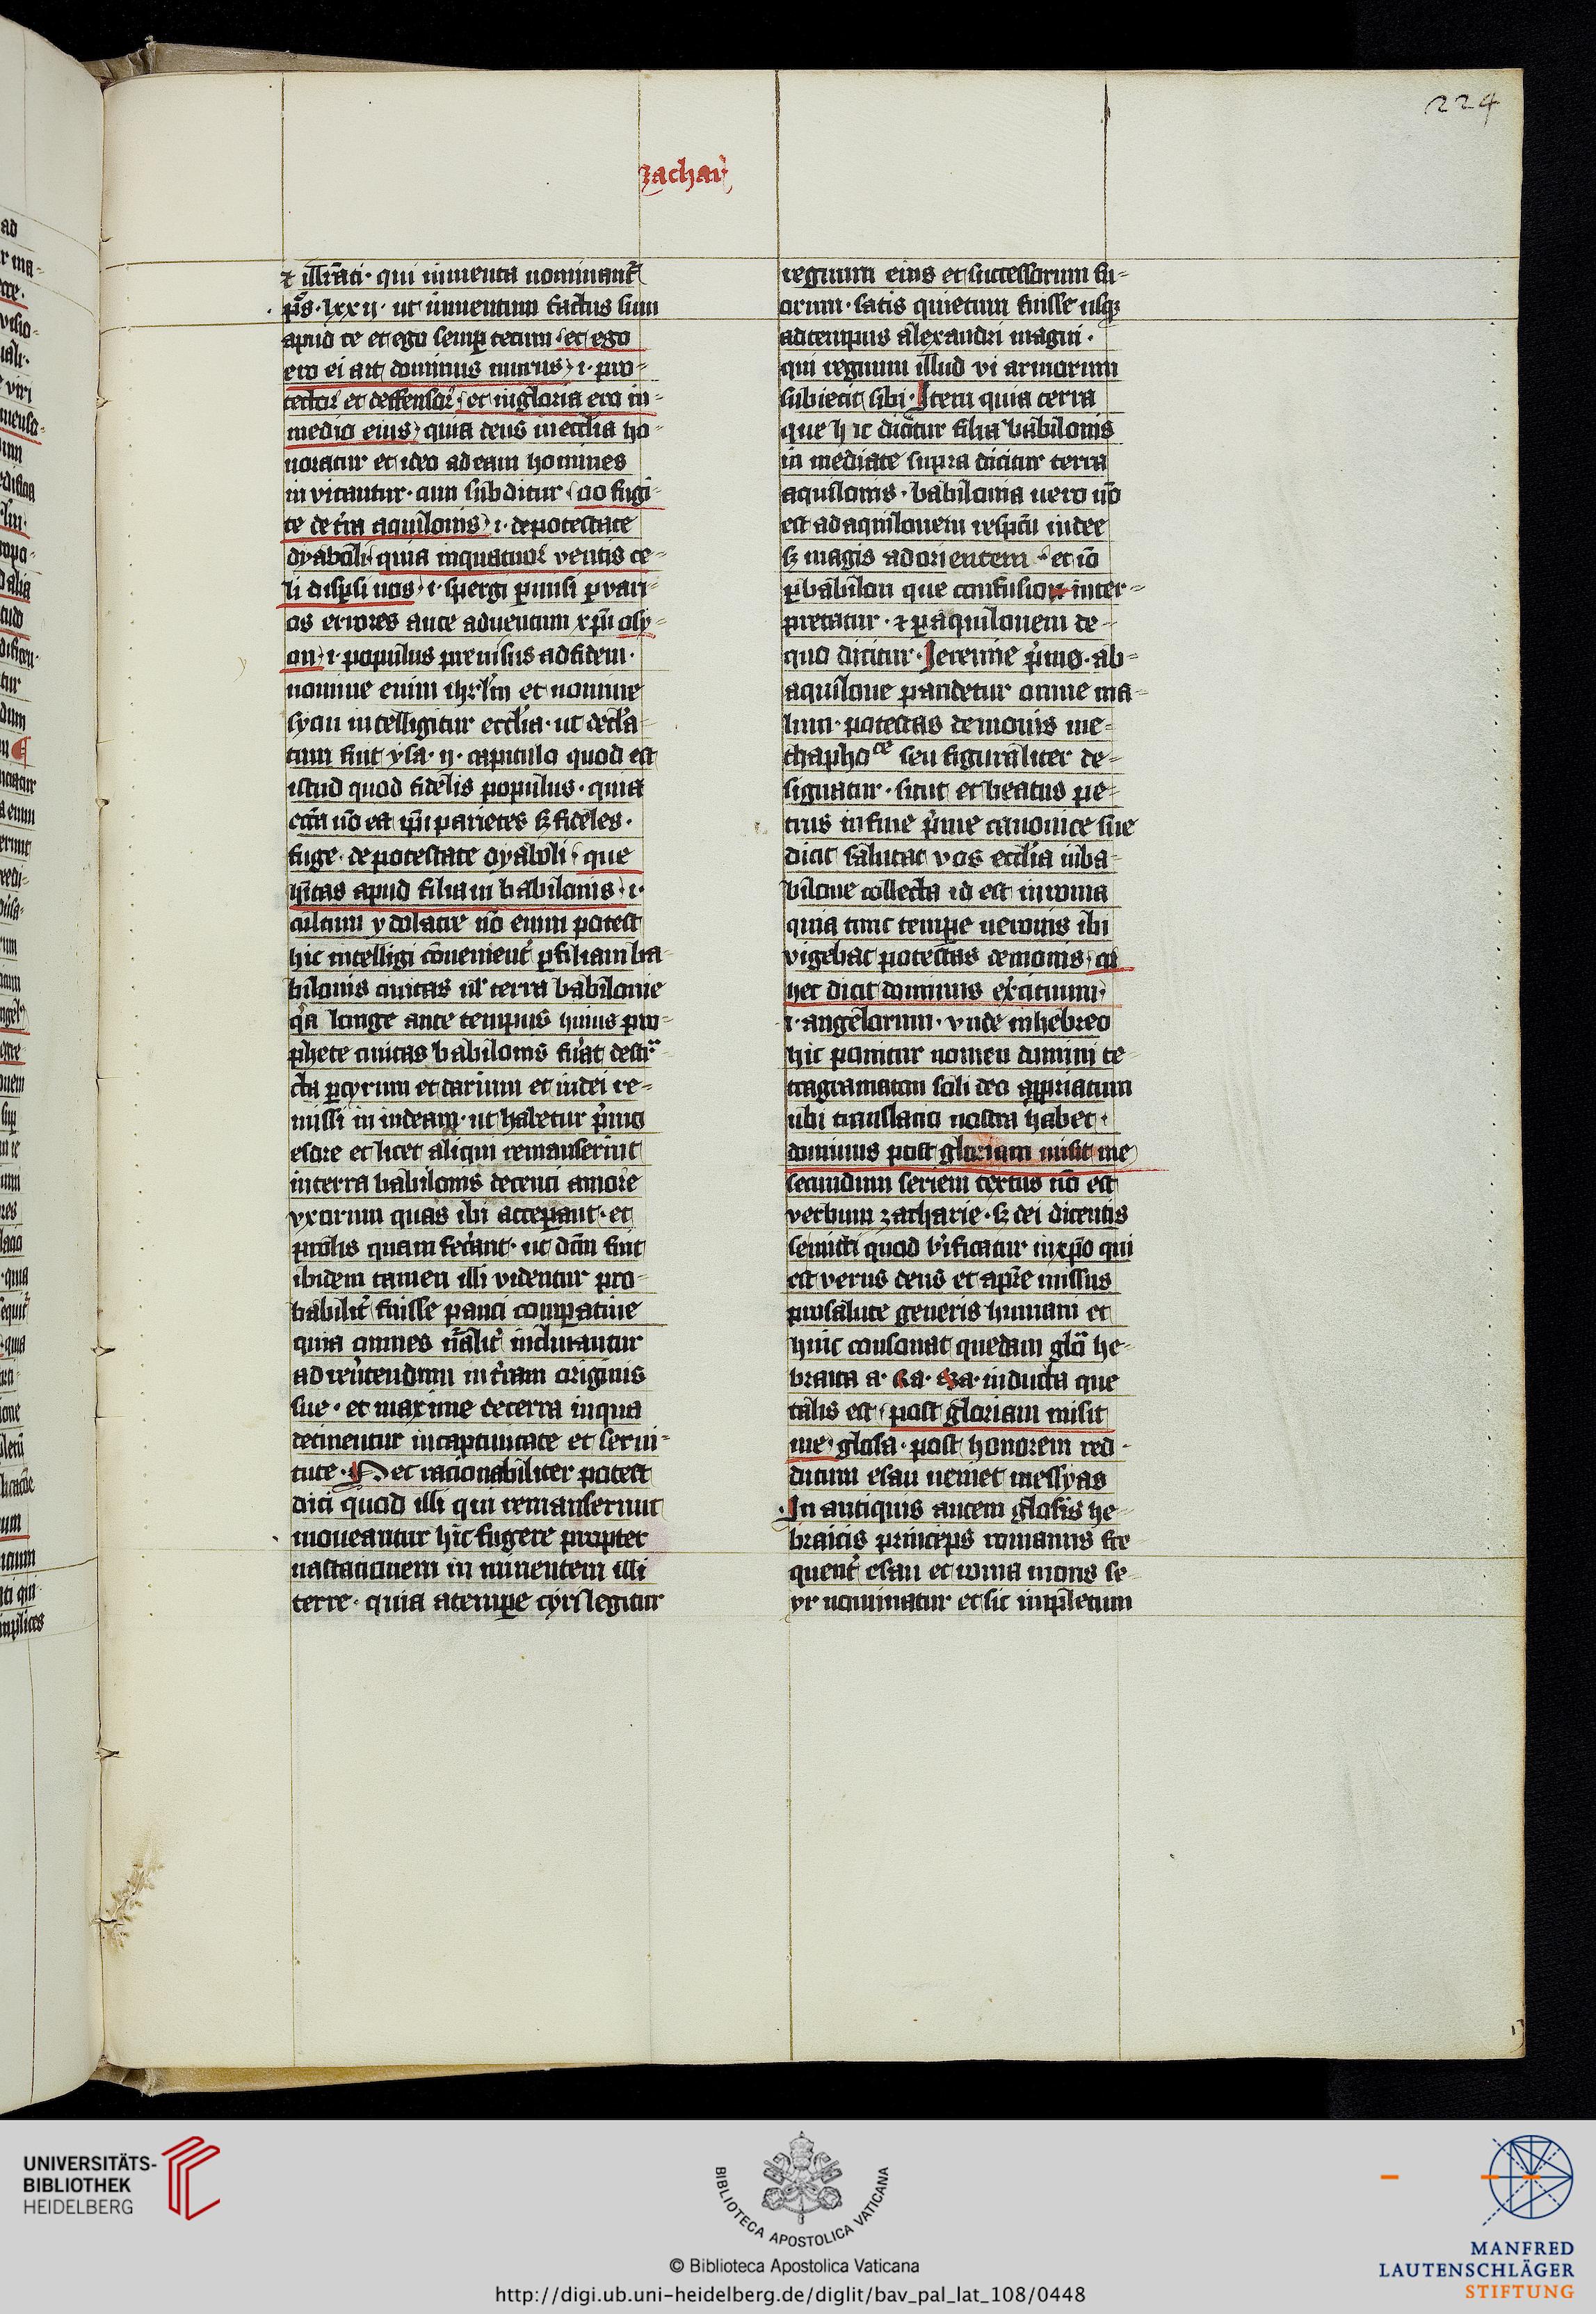 224
zachar̃
⁊ illr̃ati · qui iumenta nominant᷑
ps̃ · lxxij · ut iumentum factus sum
apud te et ego semꝑ tecum · et ego
ero ei ait dominus murus · i · pro-
tector et deffensor · et in gloria ero in
medio eius · quia deus in ecclia ho-
noratur et ideo ad eam homines
invitantur · cum subditur · oo fugi-
te de tr̃a aquilonis · i · de potestate
dyaboli · quia in quatuor ventis ce-
li disꝑsi uos · i · spergi ꝑmisi ꝑ vari-
os errores ante aduentum xp̃i o sy-
on · i · populus preuisus ad fidem ·
nomine enim ihrlm̃ et nomine
syon intelligitur ecclia · ut decla-
tum fuit ysa · ij · capitulo quod est
istud quod fidelis populus · quia
ecc̃a nõ est ip̃i parietes sꝫ fideles ·
fuge · de potestate dyaboli · que
hĩtas apud filiam babilonis · i ·
cultum ydolatrie nõ enim potest
hic intelligi cõuenient᷑ ꝑ filiam ba-
bilonis ciuitas ul᷑ terra babilonie
q̃a longe ante tempus huius pro-
phete ciuitas babilonis fu᷑at destr̃-
cta ꝑ cyrum et darium et iudei re-
missi in iudeam · ut habetur p̃mo
esdre et licet aliqui remanserint
in terra babilonis detenti amore
vxorum quas ibi acceꝑant · et
prolis quam fec᷑ant · ut dc̃m fuit
ibidem tamen illi videntur pro-
babilit᷑ fuisse pauci comꝑatiue
quia omnes nãlit᷑ inclinantur
ad reu᷑tendum in tr̃am originis
sue · et maxime de terra in qua
detinentur in captiuitate et serui-
tute · Nec racionabiliter potest
dici quod illi qui remanserunt
moueantur hic fugere propter
uastationem inminentem illi
terre · quia a temꝑe cyri legitur
regnum eius et successorum su-
orum · satis quietum fuisse usqꝫ
ad tempus alexandri magni ·
qui regnum illud vi armorum
subiecit sibi · Item quia terra
que hic dicitur filia babilonis
inmediate supra dicitur terra
aquilonis · babilonia uero nõ
est ad aquilonem respc̃u iudee
sꝫ magis ad orientem · et iõ
ꝑ babilon que confusio inter-
pretatur · ⁊ ꝑ aquilonem de
quo dicitur · Jeremie p̃mo · ab
aquilone pandetur omne ma-
lum · potestas demonis me-
thaphoce seu figuraliter de-
signatur · sicut et beatus pe-
trus in fine p̃me canonice sue
dicit salutat vos ecclia in ba-
bilone collecta id est in roma
quia tunc tempe neronis ibi
vigebat potestas demonis · q̃
hec dicit dominus ex᷑cituum ·
i · angelorum · vnde in hebreo
hic ponitur nomen domini te-
tragramaton soli deo appriatum
ubi translatio nostra habet ·
dominus post gloriam misit me
secundum seriem textus nõ est
verbum zacharie · sꝫ dei dicentis
se mitti quod v᷑ificatur in xp̃o qui
est verus deus et a pr̃e missus
pro salute generis humani et
huic consonat quedam glõ he-
braica a · Ra · Sa · inducta que
talis est · post gloriam misit
me · glosa · post honorem red-
ditum esau ueniet messyas
In antiquis autem glosis he-
braicis princeps romanus fre-
quent᷑ esau et roma mons se-
yr nominatur et sic impletum
UNIVERSITÄTS-
BIBLIOTHEK
HEIDELBERG
BIBLIOTECA APOSTOLICA VATICANA
© Biblioteca Apostolica Vaticana
http://digi.ub.uni-heidelberg.de/diglit/bav_pal_lat_108/0448
MANFRED
LAUTENSCHLÄGER
STIFTUNG